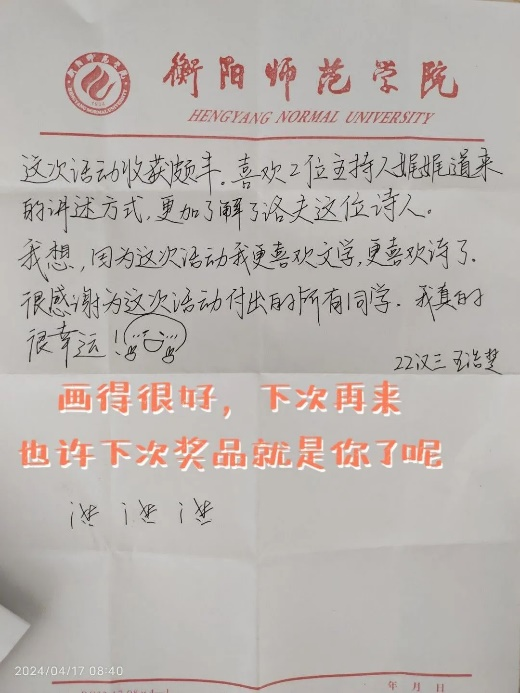 衡阳师范学院
HENGYANG NORMAL UNIVERSITY
这次活动收获颇丰。喜欢2位主持人娓娓道来
的讲述方式,更加了解了洛夫这位诗人。
我想,因为这次活动我更喜欢文学,更喜欢诗了.
很感谢为这次活动付出的所有同学.我真的
很幸运!
22汉三 王浩楚
画得很好,下次再来
也许下次奖品就是你了呢
2024/04/17 08:40
年 月 日